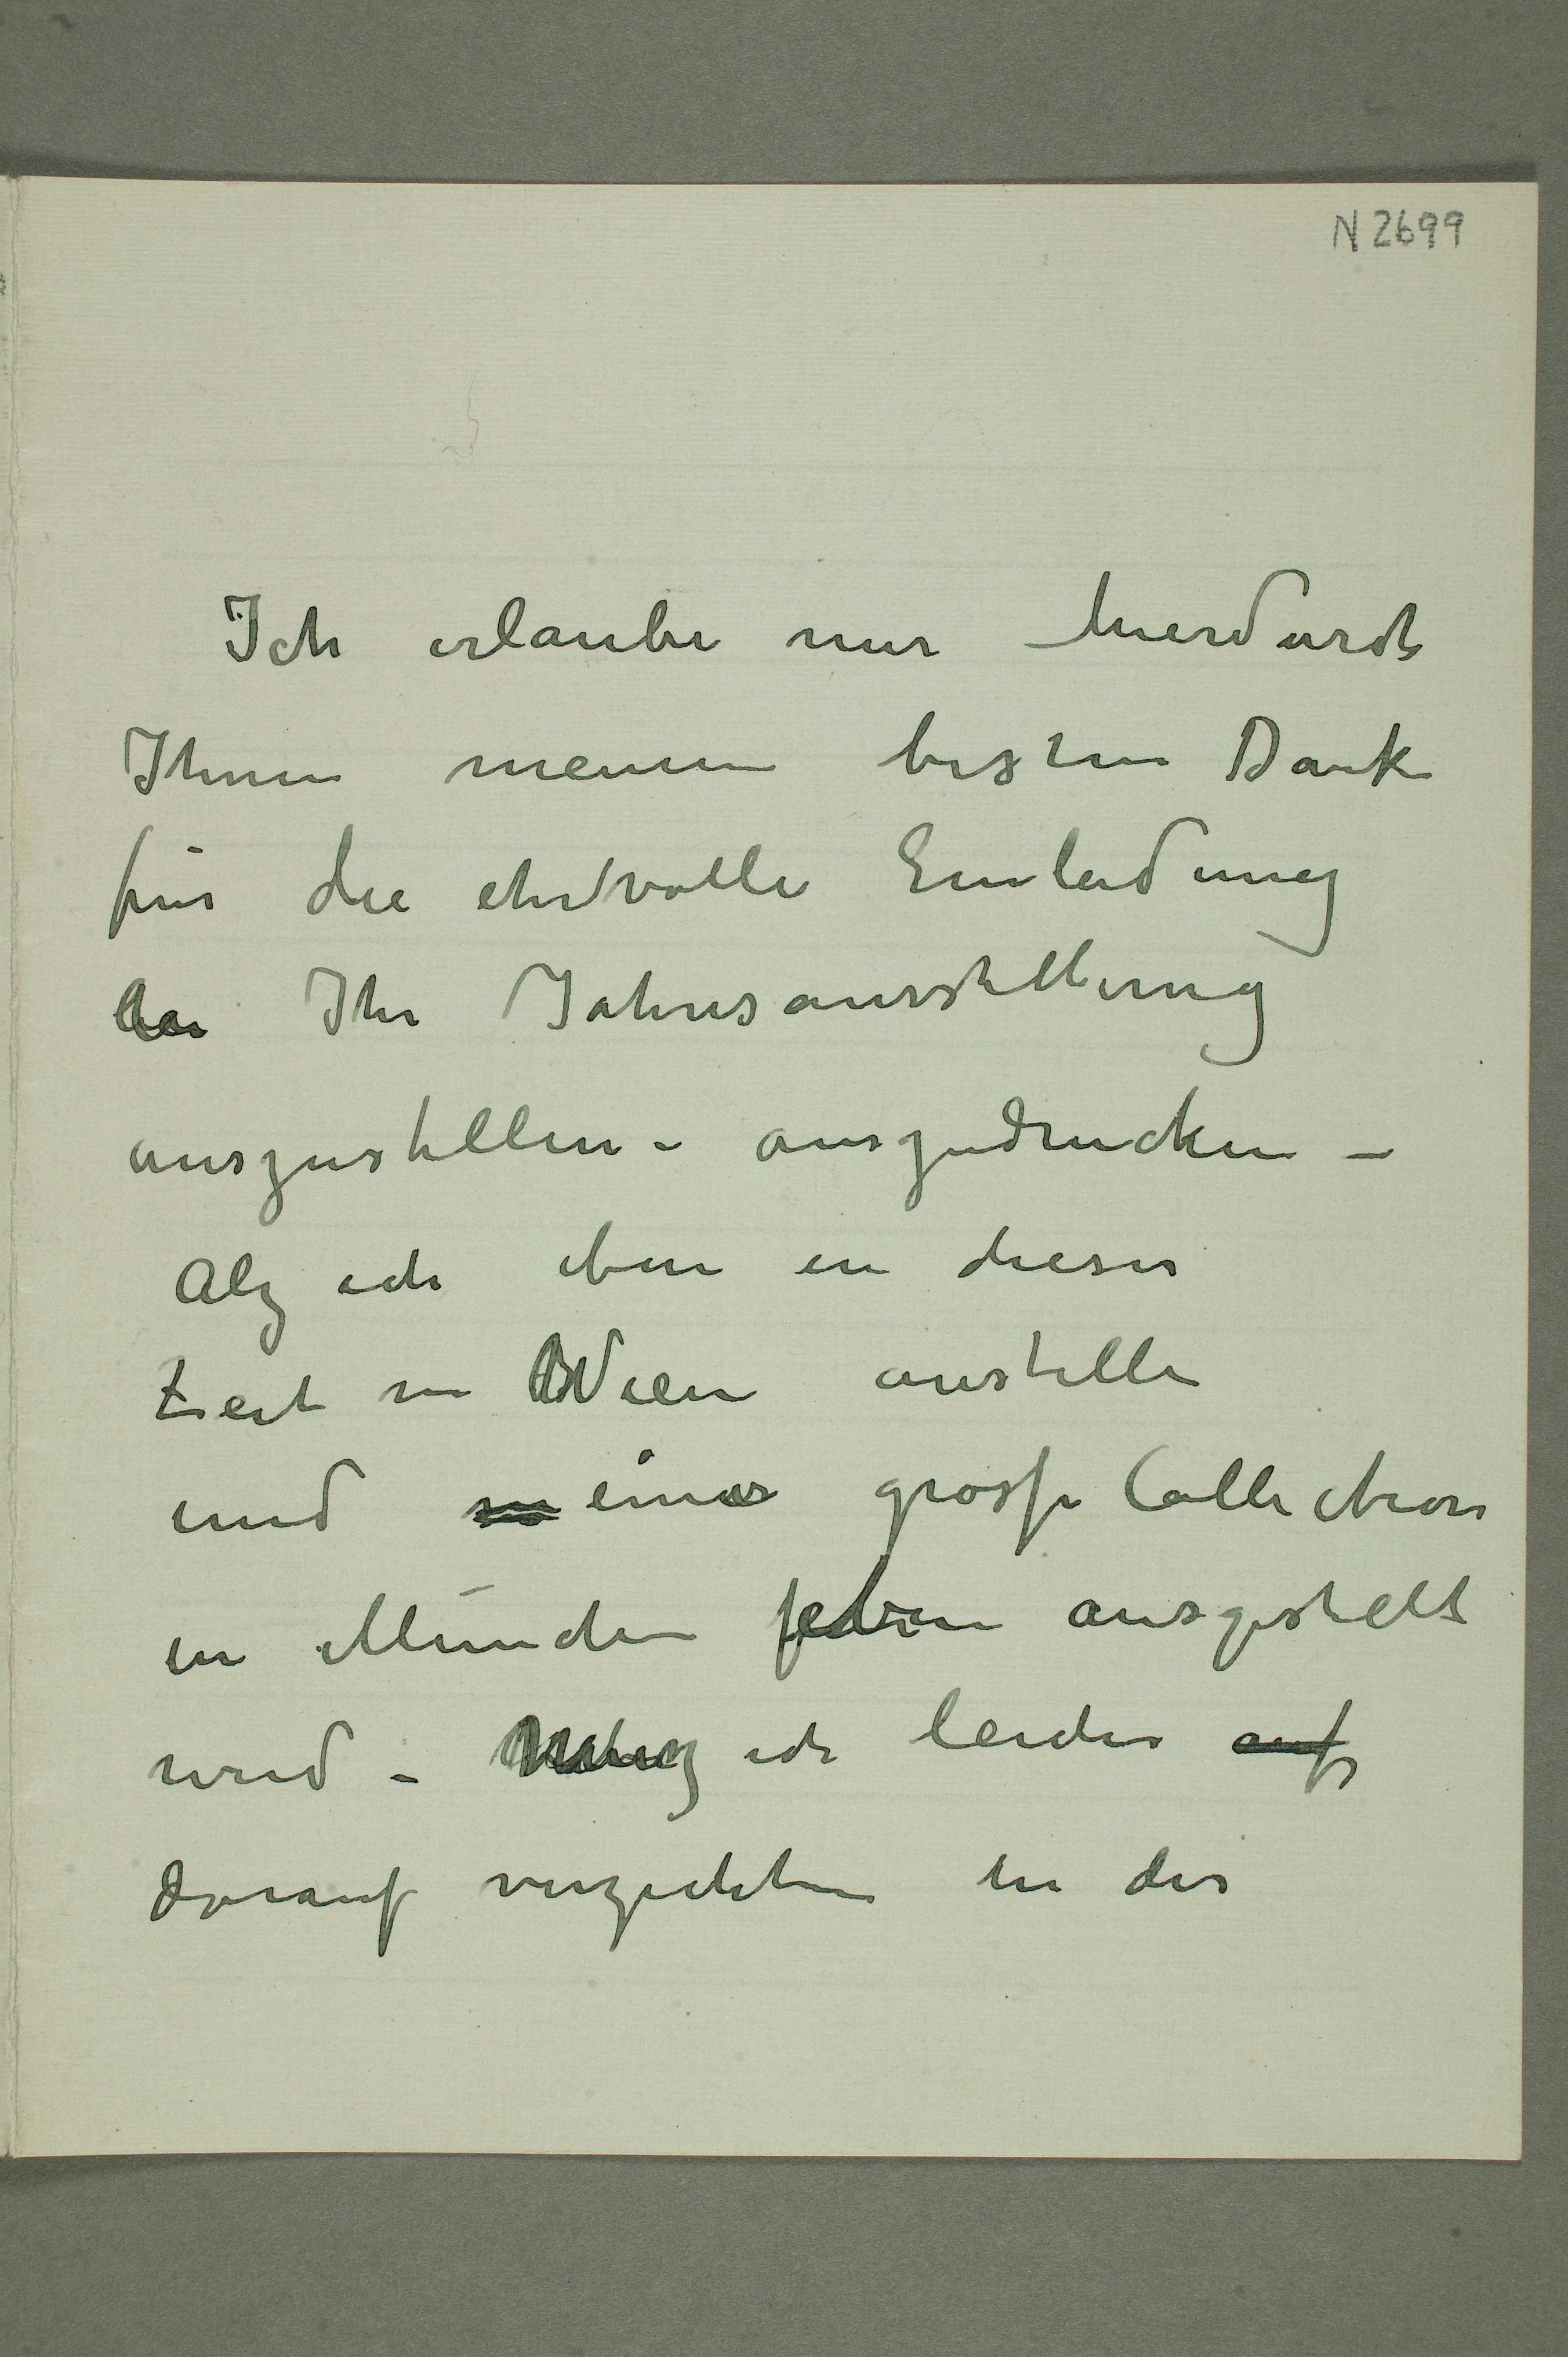 N 2699
Ich erlaube mir hierdurch
Ihnen meinen besten Dank
für die ehrvolle Einladung
Ihr Jahresausstellung
auszustellen – auszudrucken –
Alz ich eben in dieser
Zeit in Wien austelle
und eine grosse Collection
in München ausgestellt
wird – ich leider auf
darauf verzichten in der